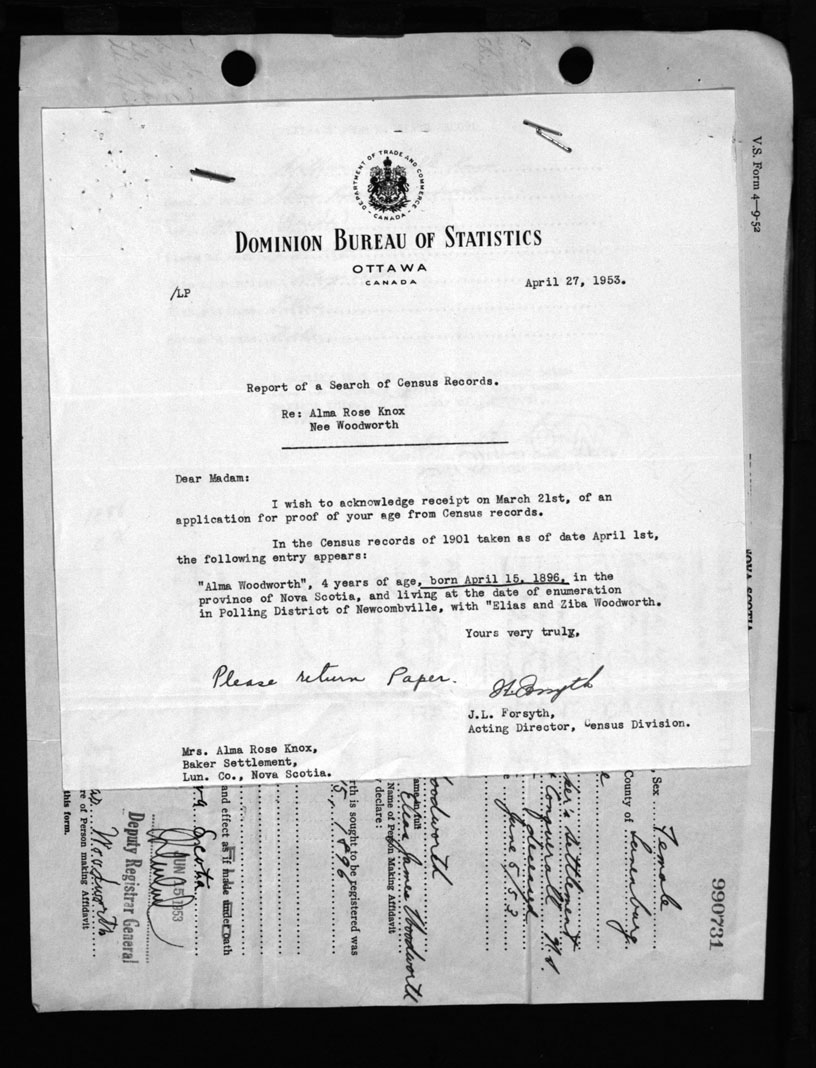 DEPARTMENT OF TRADE AND COMMERCE
- CANADA -
DOMINION BUREAU OF STATISTICS
OTTAWA
CANADA
/LP
April 27, 1953.
Report of a Search of Census Records.
Re: Alma Rose Knox
Nee Woodworth
Dear Madam:
I wish to acknowledge receipt on March 21st, of an
application for proof of your age from Census records.
In the Census records of 1901 taken as of date April 1st,
the following entry appears:
"Alma Woodworth", 4 years of age, born April 15, 1896, in the
province of Nova Scotia, and living at the date of enumeration
in Polling District of Newcombville, with "Elias and Ziba Woodworth.
Yours very truly,
Please return Paper.
J.L. Forsyth,
Acting Director, Census Division.
Mrs. Alma Rose Knox,
Baker Settlement,
Lun. Co., Nova Scotia.
V.S. Form 4—9-52
990731
, Sex Female
County of Lunenburg.
ker's Settlement
Conquerall N.S.
deceased
June 5/53
oodworth
ame in full
Elias James Woodworth
Name of Person Making Affidavit
declare:
rth is sought to be registered was
15, 1896
and effect as if made under oath
va Scotia
JUN 15 1953
Deputy Registrar General
Woodworth
re of Person making Affidavit
this form.